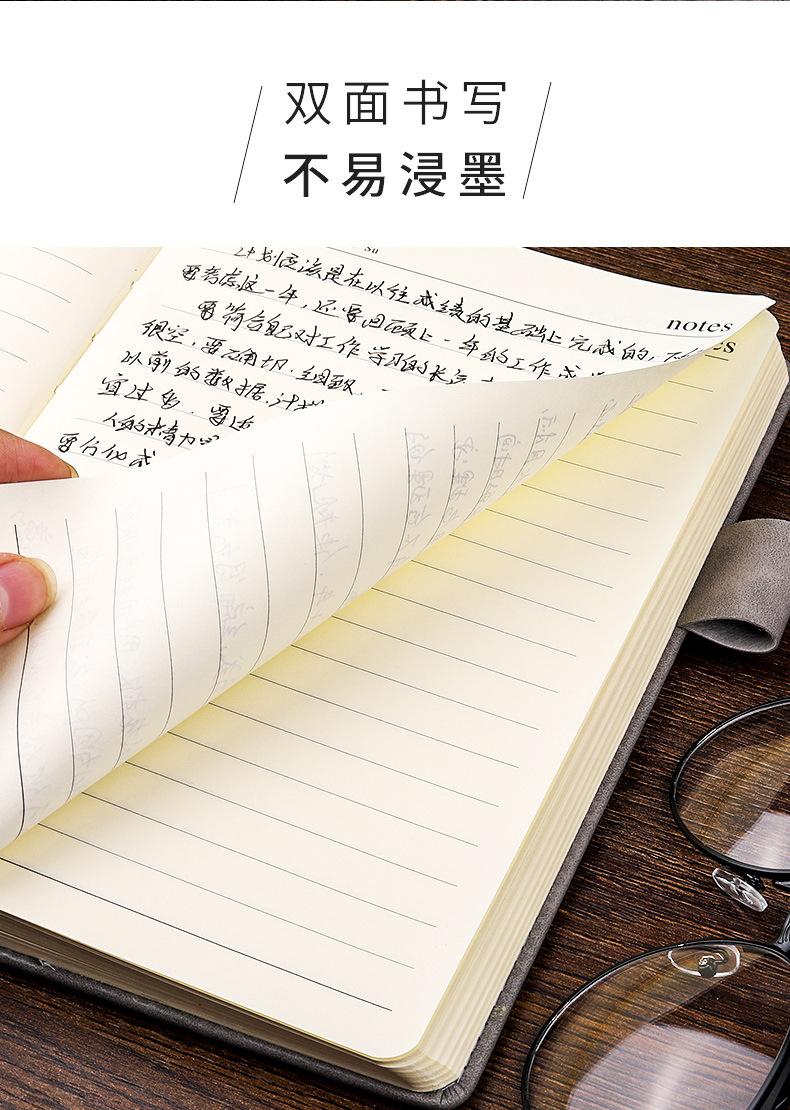 双面书写
不易浸墨
su
notes
es
计划应该是在以往成绩的基础上完成的,
要考虑这一年,还要回顾上一年的工作成
要符合自己对工作学习的长远
很空,要确切,细致.
以前的数据,计划
宜过多.要适
人的精力
要分化成